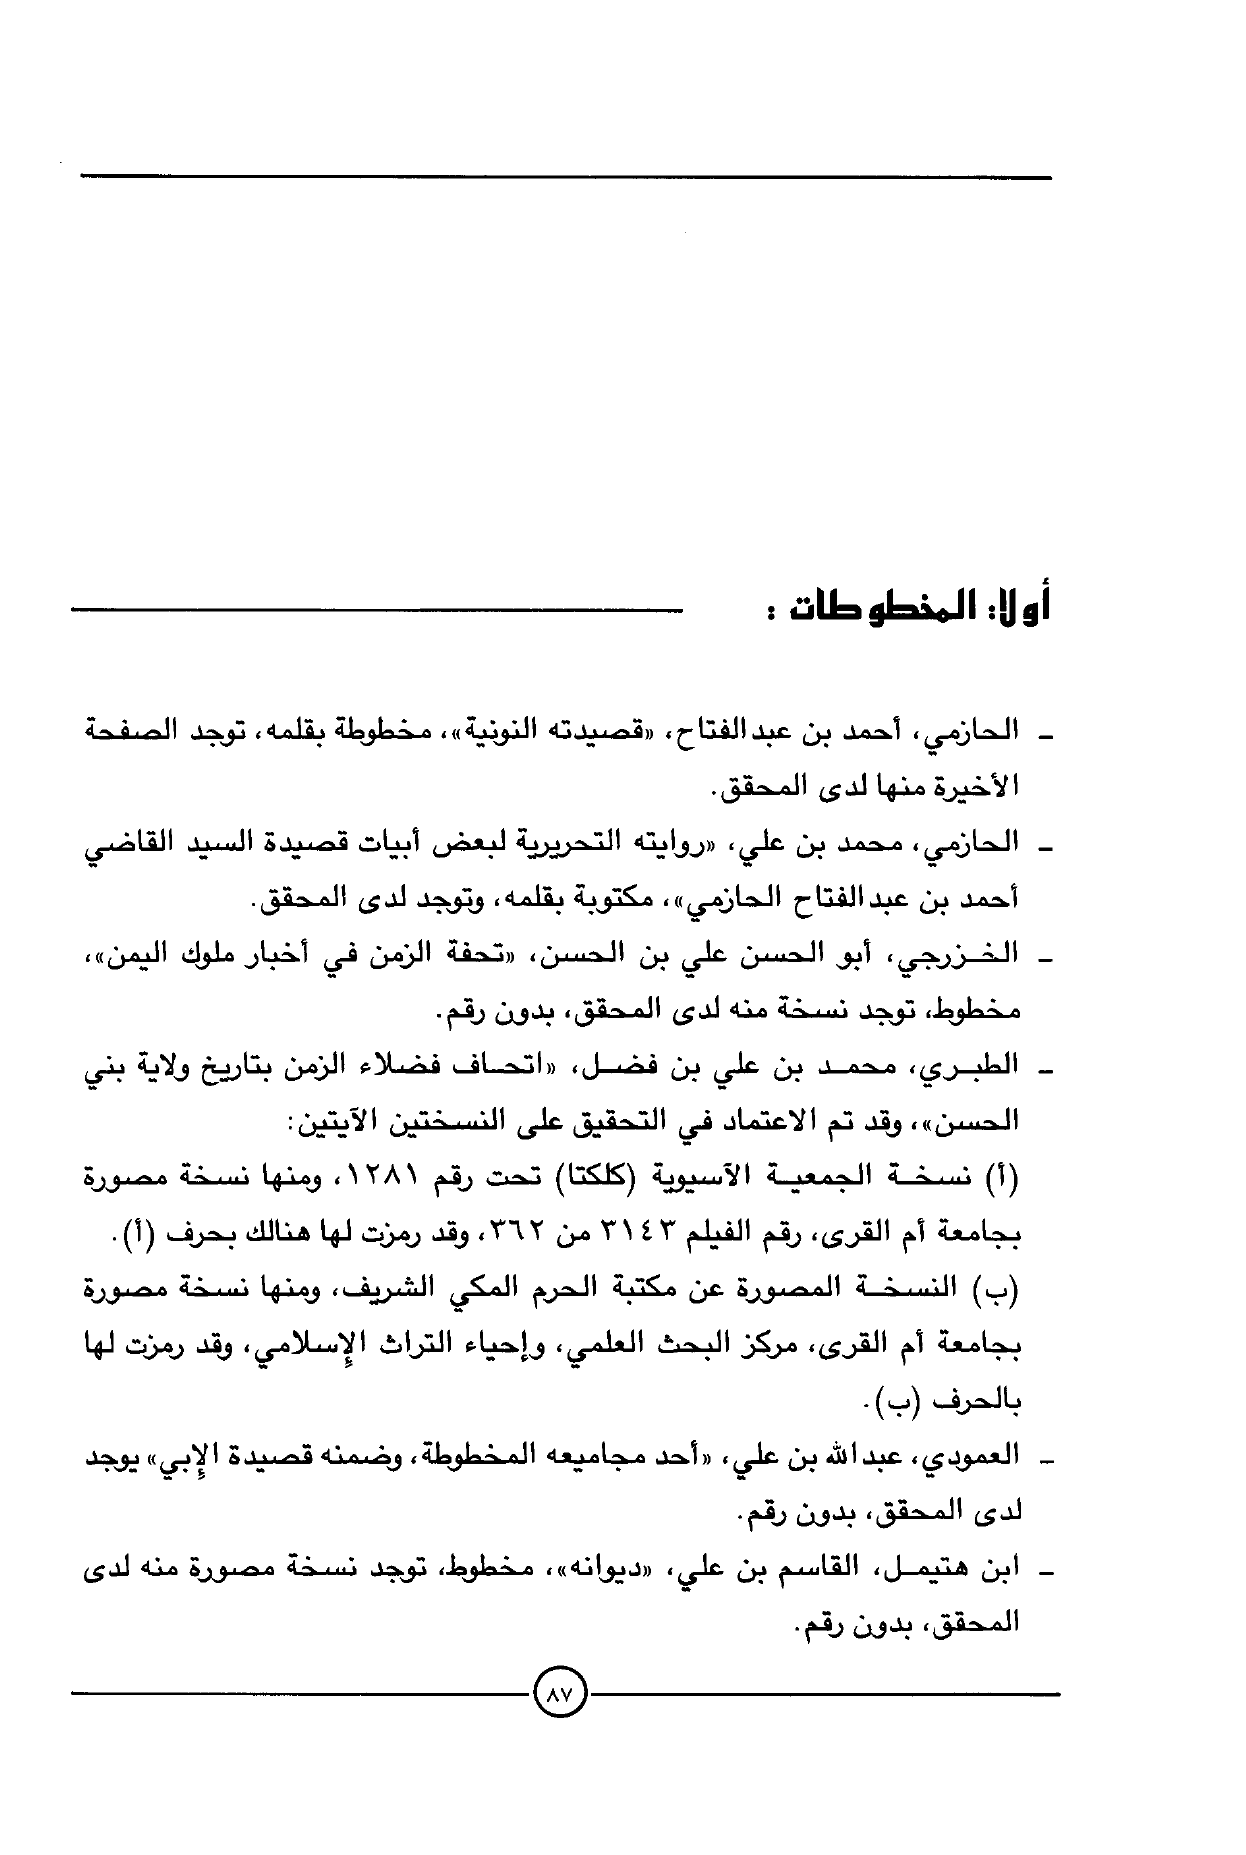 أولا: المخطوطات :
ـ الحازمي، أحمد بن عبدالفتاح، «قصيدته النونية»، مخطوطة بقلمه، توجد الصفحة
الأخيرة منها لدى المحقق.
ـ الحازمي، محمد بن علي، «روايته التحريرية لبعض أبيات قصيدة السيد القاضي
أحمد بن عبدالفتاح الحازمي»، مكتوبة بقلمه، وتوجد لدى المحقق.
ـ الخـزرجي، أبو الحسن علي بن الحسن، «تحفة الزمن في أخبار ملوك اليمن»،
مخطوط، توجد نسخة منه لدى المحقق، بدون رقم.
ـ الطبـري، محمـد بن علي بن فضـل، «اتحـاف فضـلاء الزمن بتاريخ ولاية بني
الحسن»، وقد تم الاعتماد في التحقيق على النسختين الآيتين:
(أ) نسخـة الجمعيـة الآسيوية (كلكتا) تحت رقم ١٢٨١، ومنها نسخة مصورة
بجامعة أم القرى، رقم الفيلم ٣١٤٣ من ٣٦٢، وقد رمزت لها هنالك بحرف (أ).
(ب) النسخـة المصورة عن مكتبة الحرم المكي الشريف، ومنها نسخة مصورة
بجامعة أم القرى، مركز البحث العلمي، وإحياء التراث الإسلامي، وقد رمزت لها
بالحرف (ب).
ـ العمودي، عبدالله بن علي، «أحد مجاميعه المخطوطة، وضمنه قصيدة الإبي» يوجد
لدى المحقق، بدون رقم.
ـ ابن هتيمـل، القاسم بن علي، «ديوانه»، مخطوط، توجد نسخة مصورة منه لدى
المحقق، بدون رقم.
٨٧